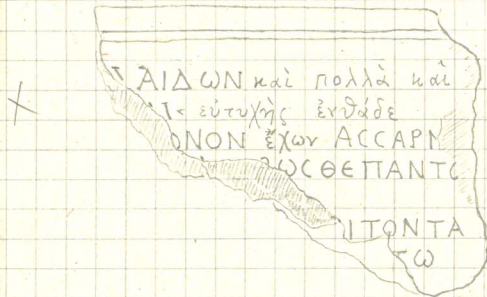 ΑΙΔΩΝ καὶ πολλὰ καὶ
εὐτυχὴς ἐνθάδε
ΟΝΟΝ ἔχων ΑϹϹΑΡΝ
ΩϹΘΕΠΑΝΤϹ
ΙΤΟΝΤΑ
ΤΩ